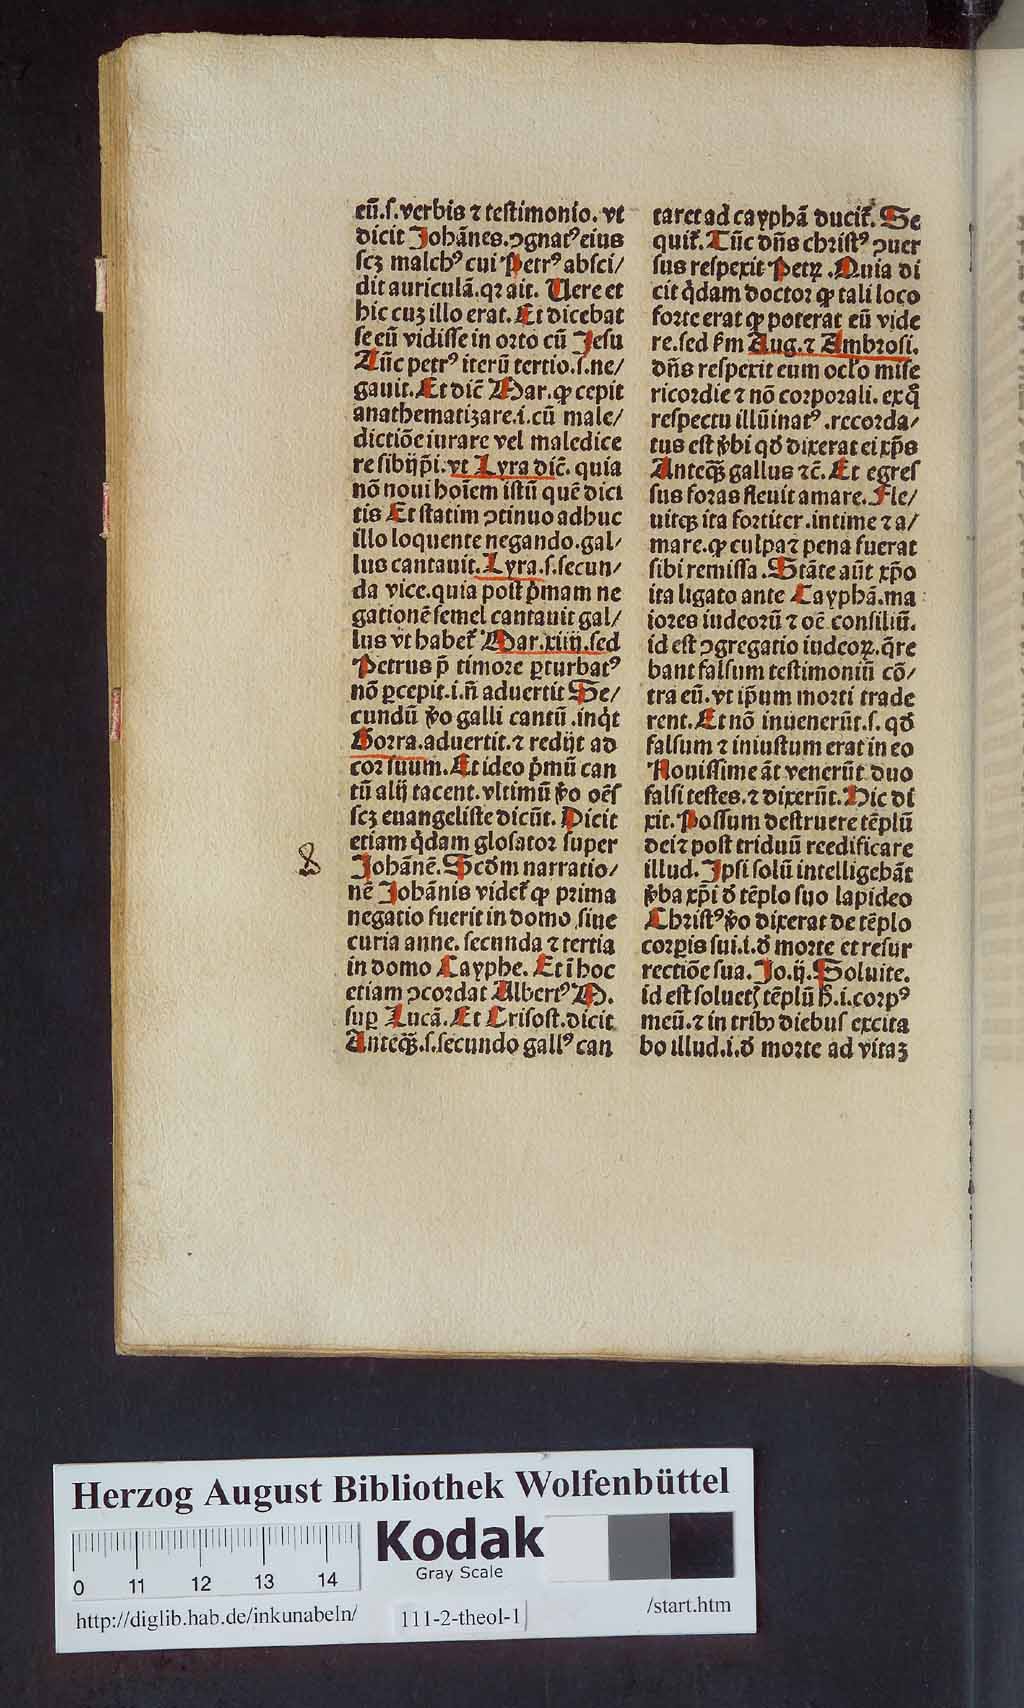 eū.ſ.verbis ⁊ teſtimonio. vt
dicit Johānes.ↄgnatꝰ eius
ſcꝫ malchꝰ cui Petrꝰ abſci/
dit auriculā.qꝛ ait. Uere et
hic cuꝫ illo erat. Et dicebat
ſe eū vidiſſe in oꝛto cū Jeſu
Tūc petrꝰ iterū tertio.ſ.ne/
gauit. Et dic̄ Mar.ꝙ cepit
anathematizare.i.cū male/
dictiōe iurare vel maledice
re ſibijp̄i.vt Lyra dic̄. quia
nō noui hoīem iſtū quē dici
tis Et ſtatim ↄtinuo adhuc
illo loquente negando.gal/
lus cantauit. Lyra.ſ.ſecun/
da vice.quia poſt p̄mam ne
gationē ſemel cantauit gal/
lus vt habet᷑ Mar.xiiij.ſed
Petrus p̄ timoꝛe ꝑturbatꝰ
nō ꝑcepit.i.n̄ aduertit Se/
cundū v̓o galli cantū .inq̇t
Goꝛra.aduertit.⁊ redijt ad
coꝛ ſuum. Et ideo p̄mū can
tū alij tacent. vltimū v̓o oēſ
ſcꝫ euangeliſte dicūt. Dicit
etiam q̇dam gloſatoꝛ ſuper
Johānē. Scd̓m narratio/
nē Johānis videt᷑ ꝙ pꝛima
negatio fuerit in domo ſiue
curia anne. ſecunda ⁊ tertia
in domo Cayphe. Et ī hoc
etiam ↄcoꝛdat Albertꝰ M.
ſuꝑ Lucā. Et Criſoſt.dicit
Anteq̄ꝫ.ſ.ſecundo gallꝰ can
taret ad cayphā ducit᷑. Se
quit᷑. Tūc dn̄s chꝛiſtꝰ ↄuer
ſus reſpexit Petꝝ .Quia di
cit q̇dam doctoꝛ ꝙ tali loco
foꝛte erat ꝙ poterat eū vide
re.ſed ẜm Aug.⁊ Ambꝛoſi.
dn̄s reſpexit eum oc̄lo miſe
ricoꝛdie ⁊ nō coꝛpoꝛali. ex q̊
reſpectu illūinatꝰ .recoꝛda/
tus eſt v̓bi qd̓ dixerat ei xp̄s
Anteq̄ꝫ gallus ⁊c̄. Et egreſ
ſus foꝛas fleuit amare. Fle/
uitqꝫ ita foꝛtiter .intime ⁊ a/
mare.ꝙ culpa ⁊ pena fuerat
ſibi remiſſa .Stāte aūt xp̄o
ita ligato ante Cayphā.ma
ioꝛes iudeoꝛū ⁊ oē conſiliū.
id eſt ↄgregatio iudeoꝝ.q̄re
bant falſum teſtimoniū cō/
tra eū.vt ip̄um moꝛti trade
rent. Et nō inuenerūt.ſ. qd̓
falſum ⁊ iniuſtum erat in eo
Nouiſſime āt venerūt duo
falſi teſtes.⁊ dixerūt. Hic di
xit. Poſſum deſtruere tēplū
dei ⁊ poſt triduū reedificare
illud. Jpſi ſolū intelligebāt
v̓ba xp̄i d̓ tēplo ſuo lapideo
Chꝛiſtꝰ v̓o dixerat de tēplo
coꝛꝑis ſui.i.d̓ moꝛte et reſur
rectiōe ſua. Jo.ij. Soluite.
id eſt ſoluetꝭ tēplū h̄.i.coꝛpꝰ
meū.⁊ in tribꝰ diebuſ excita
bo illud.i.d̓ moꝛte ad vitaꝫ
Herzog August Bibliothek Wolfenbüttel
Kodak
Gray Scale
0 11 12 13 14
http://diglib.hab.de/inkunabeln/ 111-2-theol-1 /start.htm